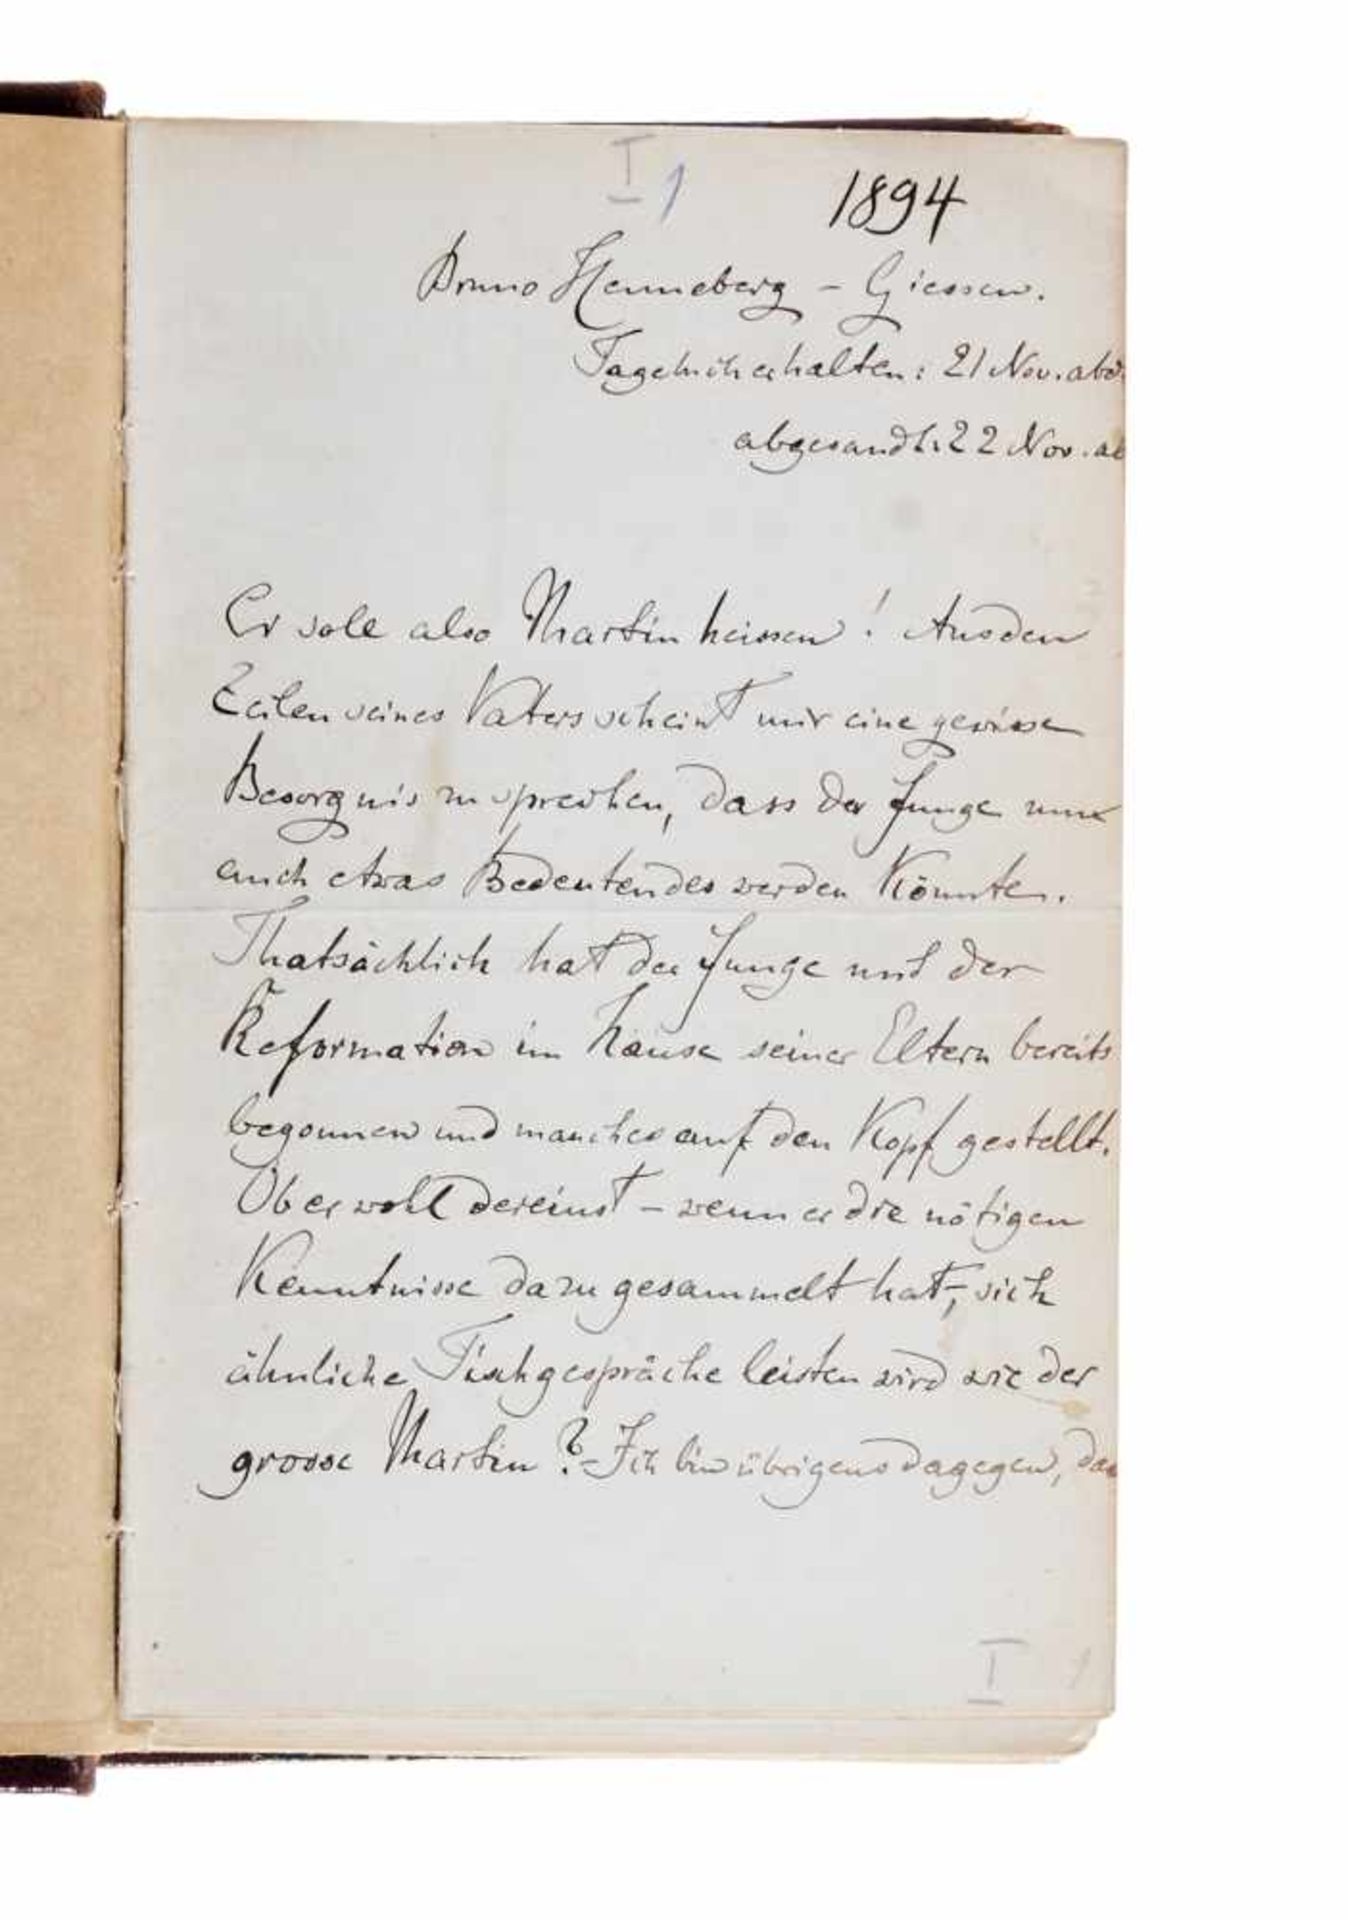 I 1
1894
Bruno Henneberg – Giessen.
Tagebuch erhalten: 21 Nov. abds.
abgesandt: 22 Nov. ab
Er soll also Martin heissen! Aus den
Zeilen seines Vaters scheint mir eine gewisse
Besorgnis zu sprechen, dass der Junge nun
auch etwas Bedeutendes werden könnte.
Thatsächlich hat der Junge mit der
Reformation im Hause seiner Eltern bereits
begonnen und manches auf den Kopf gestellt.
Ob er wohl dereinst – wenn er die nötigen
Kenntnisse dazu gesammelt hat –, sich
ähnliche Tischgespräche leisten wird wie der
grosse Martin? – Ich bin übrigens dagegen, das
I 1